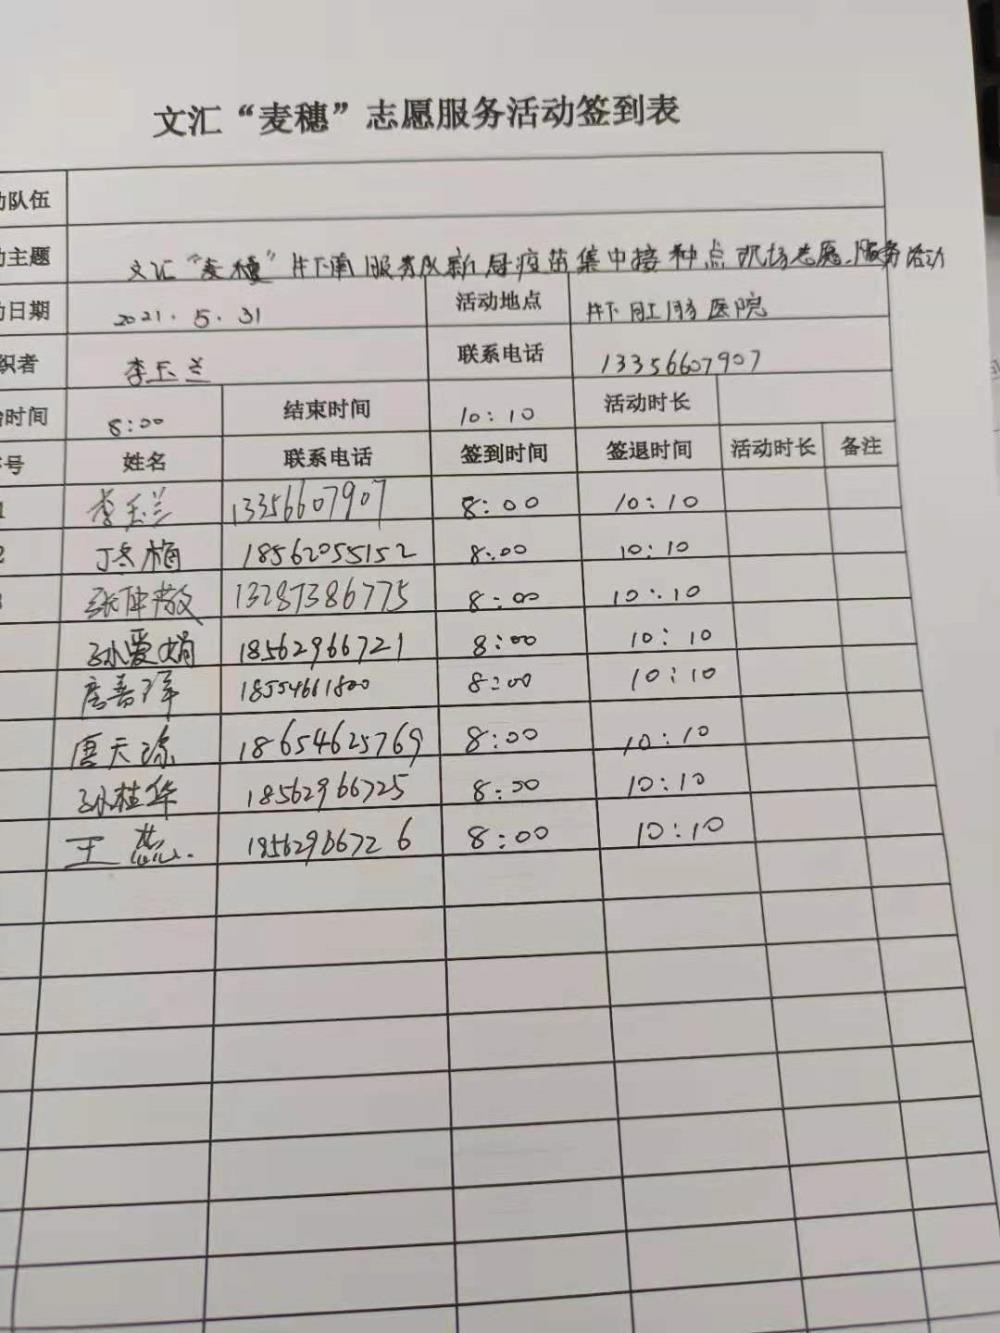 文汇“麦穗”志愿服务活动签到表
动队伍
动主题 文汇“麦穗” 服务队新冠疫苗集中接种点现场志愿服务活动
动日期 2021.5.31 活动地点 医院
织者 李玉兰 联系电话 13356607907
始时间 8:00 结束时间 10:10 活动时长
序号 姓名 联系电话 签到时间 签退时间 活动时长 备注
1 李玉兰 13356607907 8:00 10:10
2 丁冬梅 18562055152 8:00 10:10
3 张仲敬 13287386775 8:00 10:10
孙爱娟 18562966721 8:00 10:10
唐善祥 18554661800 8:00 10:10
唐天琼 18654625769 8:00 10:10
孙桂华 18562966725 8:00 10:10
王 18562966726 8:00 10:10